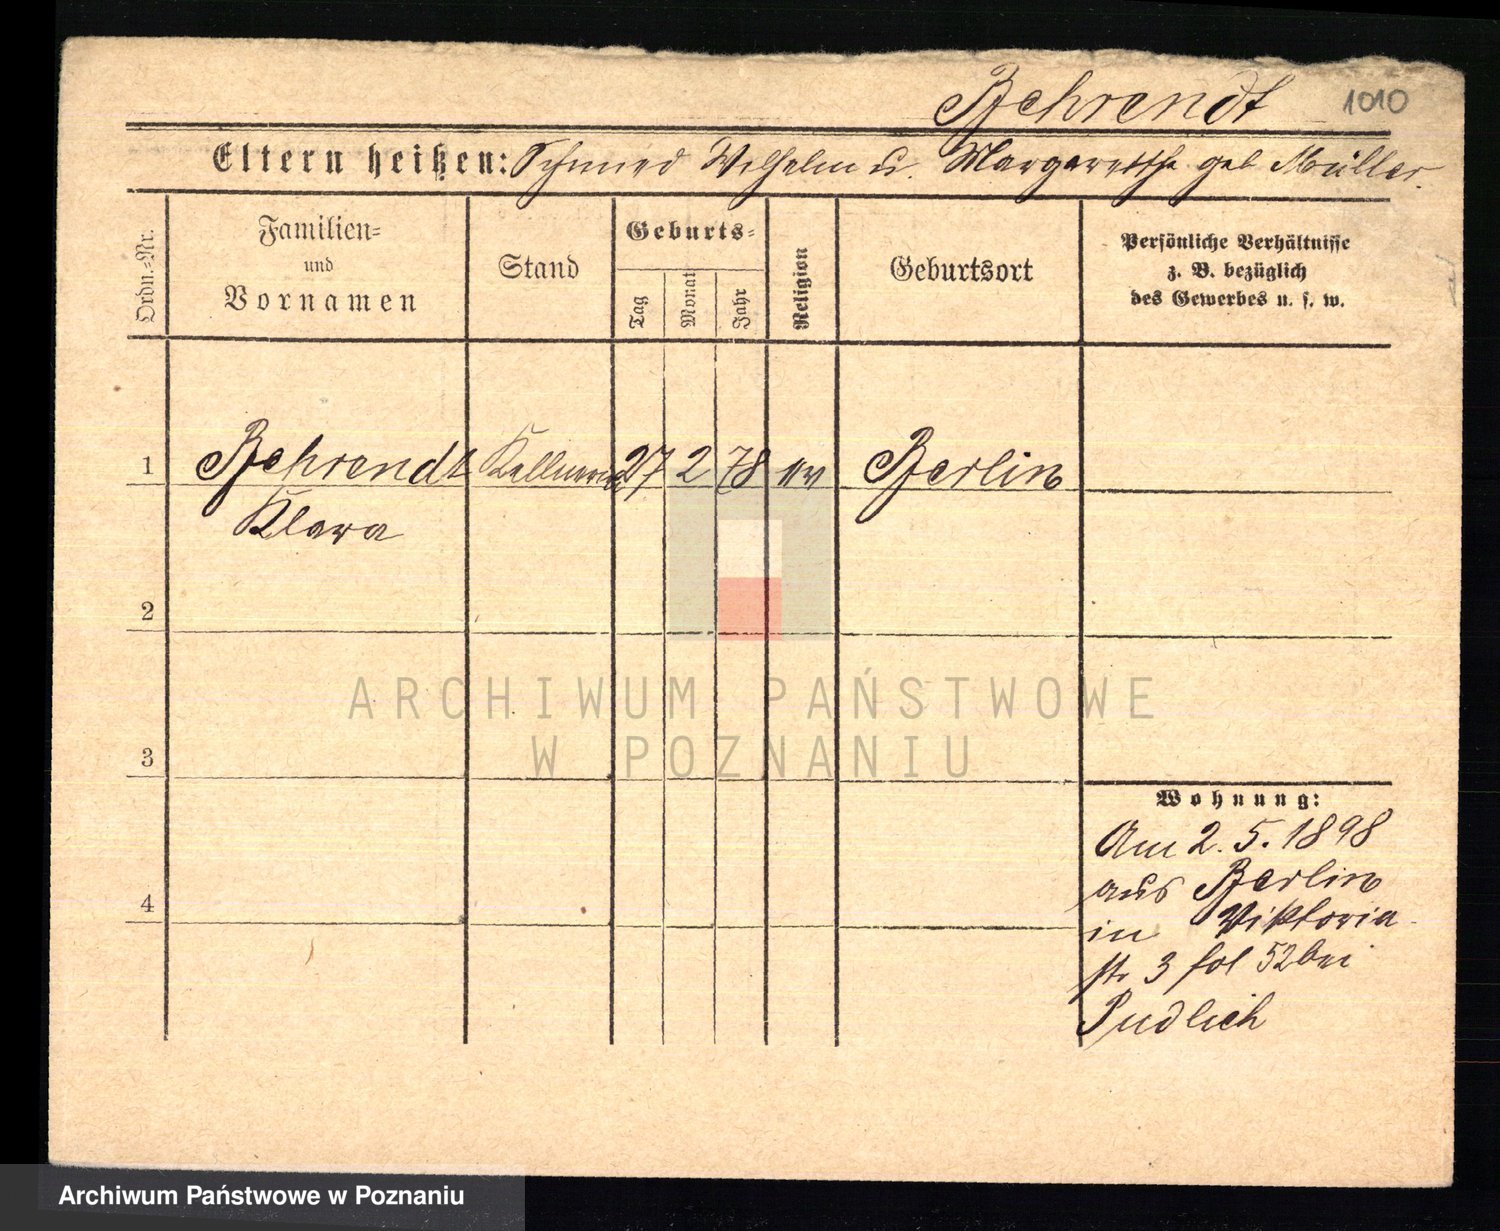 Behrendt 1010
Eltern heißen: Schmied Wilhelm u. Margarethe geb Müller.
Ordn.=Nr.
Familien=
und
Vornamen
Stand
Geburts=
Tag
Monat
Jahr
Religion
Geburtsort
Persönliche Verhältnisse
z. B. bezüglich
des Gewerbes u. s. w.
1 Behrendt Kellnerin 27 2 78 ev Berlin
Klara
2
ARCHIWUM PAŃSTWOWE
W POZNANIU
3
Wohnung:
Am 2. 5. 1898
aus Berlin
4
in Viktoria
str 3 fol 52 bei
Pudlich
Archiwum Państwowe w Poznaniu